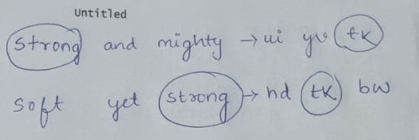 Untitled
strong and mighty → ui yv tk
soft yet strong → hd tk bw